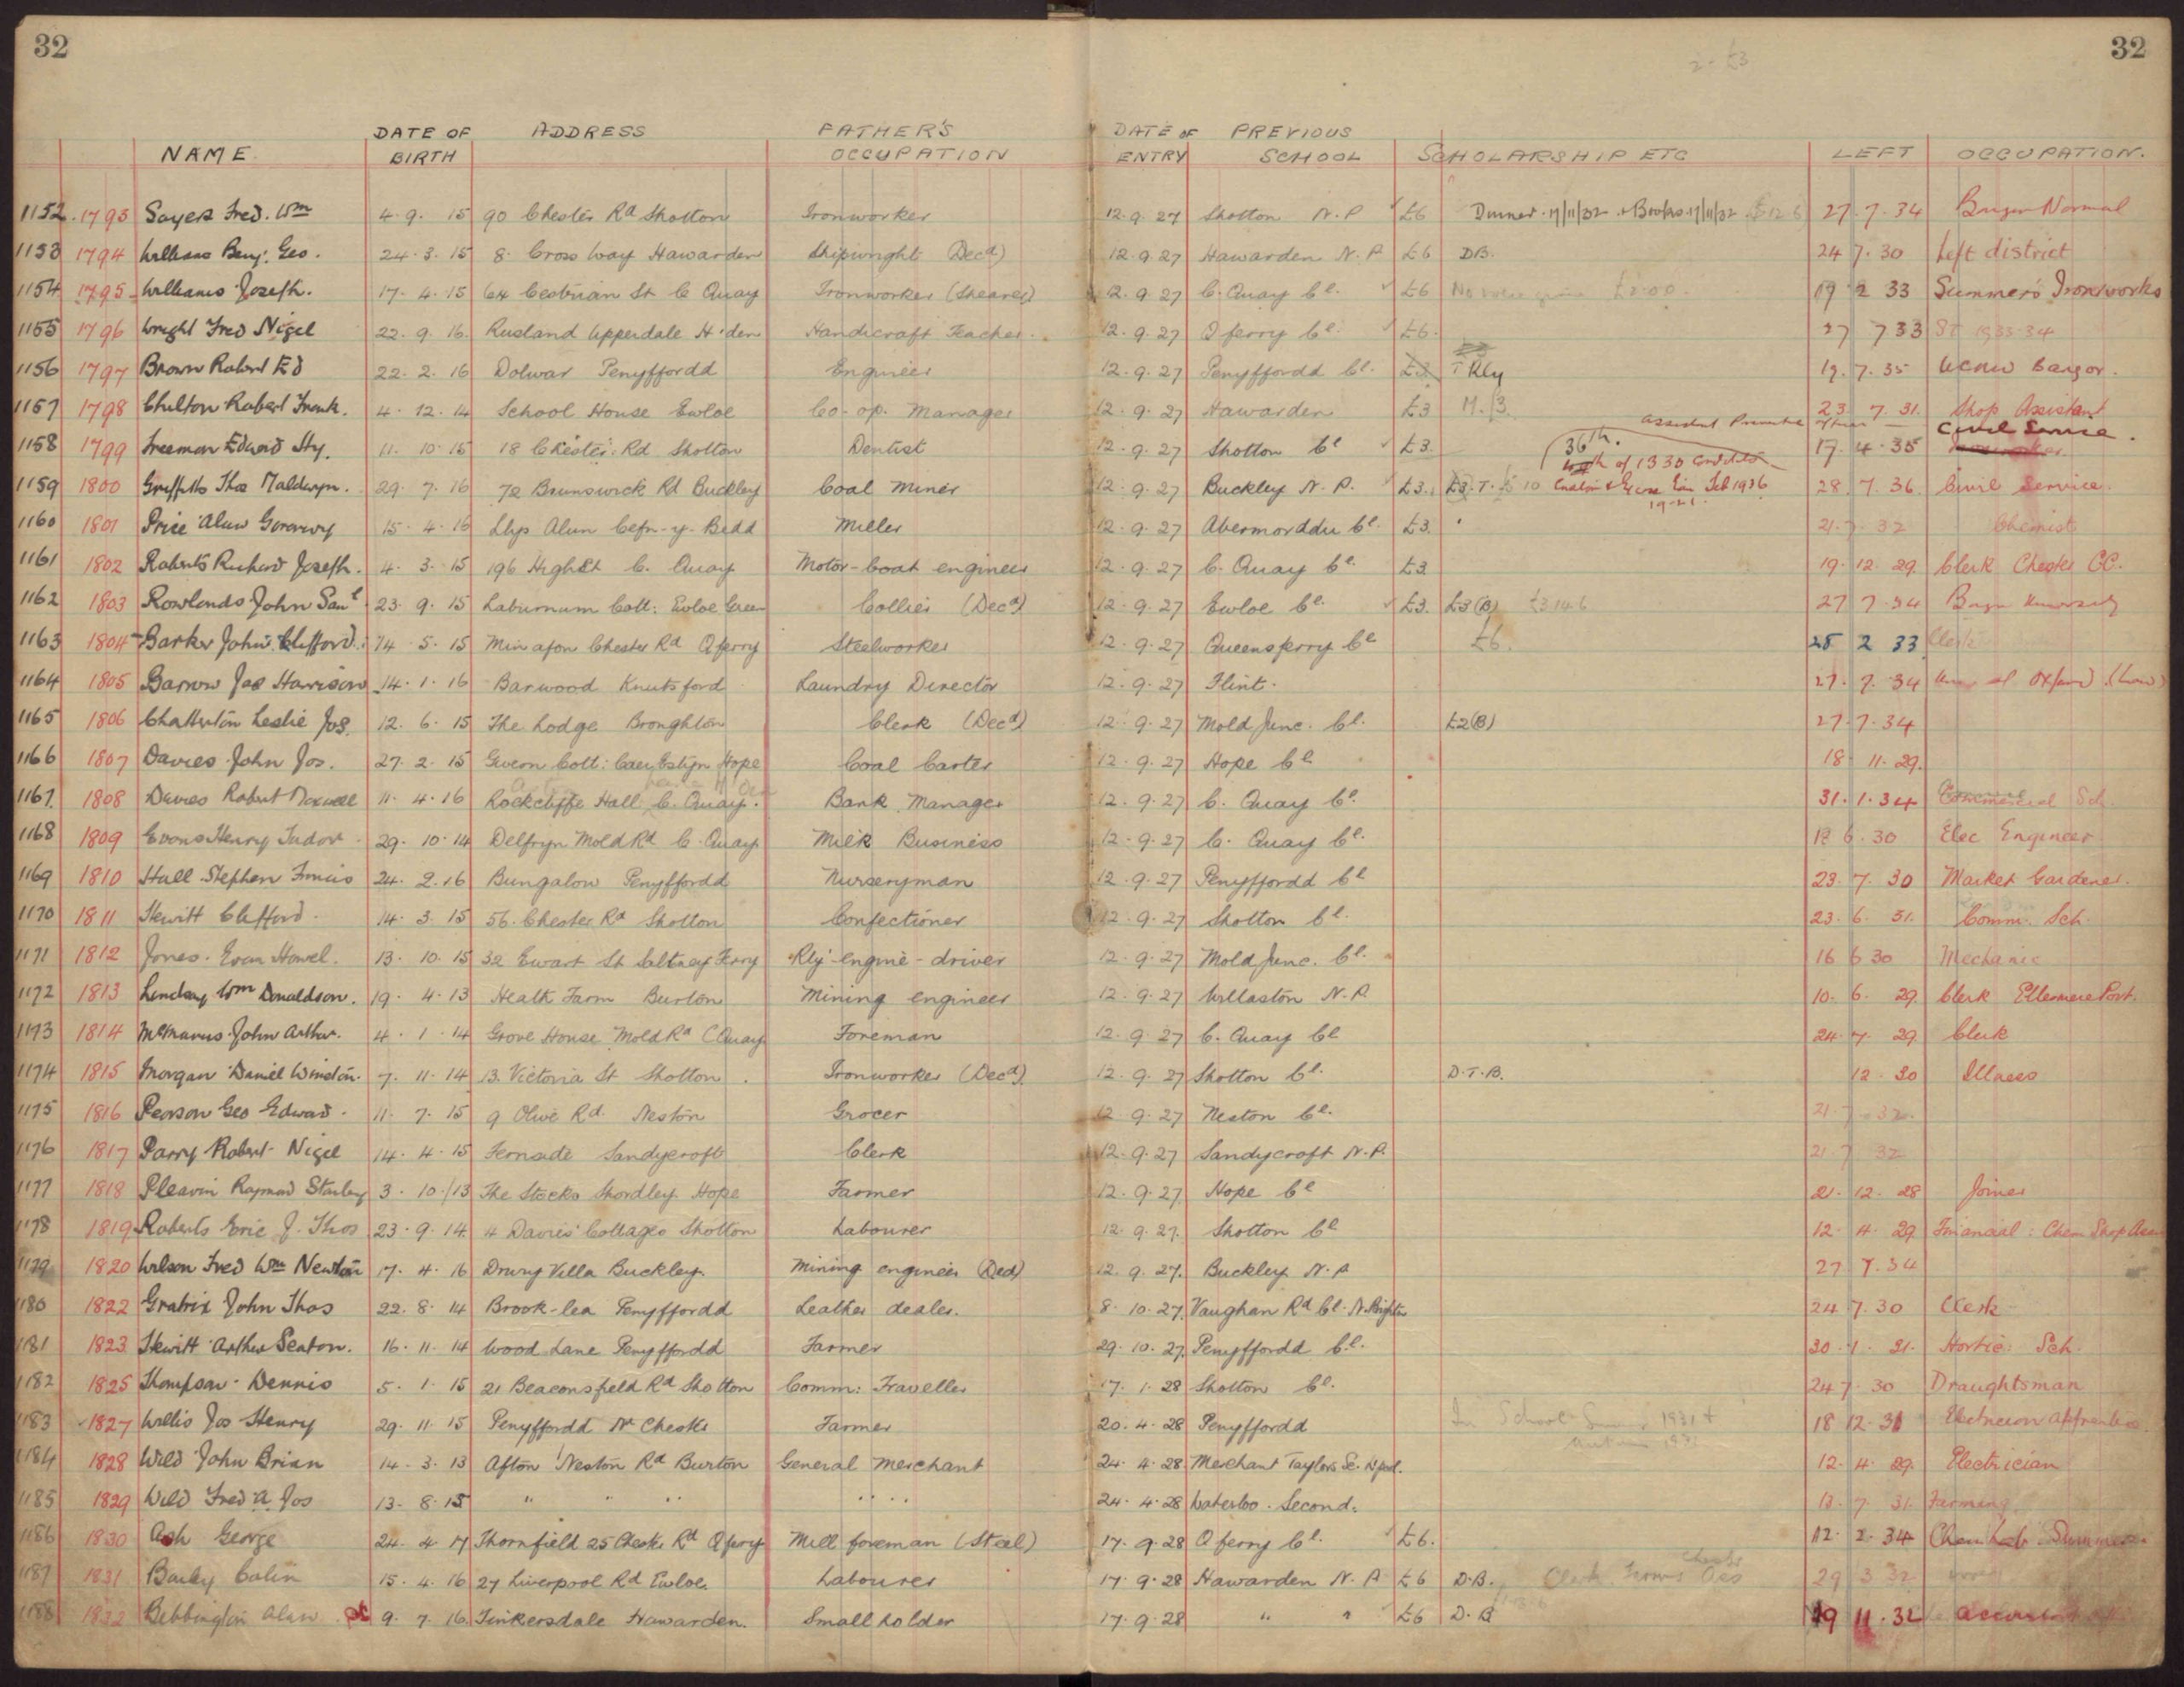 32 32
2 - £3
DATE OF ADDRESS FATHER'S DATE OF PREVIOUS
NAME BIRTH OCCUPATION ENTRY SCHOOL SCHOLARSHIP ETC LEFT OCCUPATION.
1152. 1793 Sayer Fred. Wm 4. 9. 15 90 Chester Rd Shotton Ironworker 12.9.27 Shotton N.P £6 Dinner. 17/11/32. Books. 17/11/32 27. 7. 34 Bangor Normal
1153 1794 Williams Benj. Geo. 24. 3. 15 8. Cross Way Hawarden Shipwright (Decd) 12.9.27 Hawarden N.P £6 DB. 24 7. 30 Left district
1154 1795 Williams Joseph. 17. 4. 15 64 Cestrian St C Quay Ironworker (Shearer) 12.9.27 C. Quay Cl. £6 19 2 33 Summers Ironworks
1155 1796 Wright Fred Nigel 22. 9. 16. Rusland Upperdale H'den Handicraft Teacher. 12.9.27 Qferry Cl. £6. 27 7 33 1933-34
1156 1797 Brown Robert Ed 22. 2. 16 Dolwar Penyffordd Engineer 12.9.27 Penyffordd Cl. £3 T Rly 19. 7. 35 UCNW Bangor.
1157 1798 Chilton Robert Frank. 4. 12. 14 School House Ewloe Co-op. Manager 12.9.27 Hawarden £3 M.B. 23 7. 31. Shop Assistant
Assistant Preventive Officer Civil Service.
1158 1799 Freeman Edward Hy. 11. 10. 15 18 Chester Rd Shotton Dentist 12.9.27 Shotton Cl £3. 36th. 17. 4. 35
of 1330 Candidates
1159 1800 Griffiths Thos Maldwyn. 29. 7. 16 72 Brunswick Rd Buckley Coal Miner 12.9.27 Buckley N.P. £3. £3. T. £5 10 Customs & Excise Exam Feb 1936 28. 7. 36. Civil Service.
19-21.
1160 1801 Price Alun Goronwy 15. 4. 16 Llys Alun Cefn-y-Bedd Miller 12.9.27 Abermorddu Cl. £3. 21. 7. 32 Chemist
1161 1802 Roberts Richard Joseph. 4. 3. 15 196 High St C. Quay Motor-boat engineer 12.9.27 C. Quay Cl. £3 19. 12. 29. Clerk Chester CC.
1162 1803 Rowlands John Saml 23. 9. 15 Laburnum Cott: Ewloe Green Collier (Decd) 12.9.27 Ewloe Cl. £3. £3(B) £3.14.6 27 7. 34
1163 1804 Barker John Clifford. 14. 5. 15 Min afon Chester Rd Qferry Steelworker 12.9.27 Queensferry Cl £6. 28 2 33 Clerk
1164 1805 Barrow Jas Harrison 14. 1. 16 Barwood Knutsford Laundry Director 12.9.27 Flint. 27. 7. 34 Univ. of Oxford (Law)
1165 1806 Chatterton Leslie Jos. 12. 6. 15 The Lodge Broughton Clerk (Decd) 12.9.27 Mold Junc. Cl. £2(B) 27. 7. 34
1166 1807 Davies John Jos. 27. 2. 15 Gwern Cott: Caer Estyn Hope Coal Carter 12.9.27 Hope Cl 18. 11. 29.
1167. 1808 Davies Robert Maxwell 11. 4. 16 Rockcliffe Hall C. Quay. Bank Manager 12.9.27 C. Quay Cl. 31. 1. 34 Commercial Sch.
1168 1809 Evans Henry Tudor 29. 10. 14 Delfryn Mold Rd C. Quay. Milk Business 12.9.27 C. Quay Cl. 18 6. 30 Elec Engineer
1169 1810 Hall Stephen Francis 24. 2. 16 Bungalow Penyffordd Nurseryman 12.9.27 Penyffordd Cl 23. 7. 30 Market Gardener.
1170 1811 Hewitt Clifford. 14. 3. 15 56. Chester Rd Shotton Confectioner 12.9.27 Shotton Cl. 23. 6. 31. Comm. Sch.
1171 1812 Jones. Evan Howel. 13. 10. 15 32 Ewart St Saltney Ferry Rly engine-driver 12.9.27 Mold Junc. Cl. 16 6 30 Mechanic
1172 1813 Lindsay Wm Donaldson. 19. 4. 13 Heath Farm Burton Mining engineer 12.9.27 Willaston N.P. 10. 6. 29. Clerk Ellesmere Port.
1173 1814 McManus John Arthur. 4. 1. 14 Grove House Mold Rd C Quay Foreman 12.9.27 C. Quay Cl 24. 7. 29. Clerk
1174 1815 Morgan Daniel Winston. 7. 11. 14 13. Victoria St Shotton. Ironworker (Decd). 12.9.27 Shotton Cl. D.T.B. 12. 30 Illness
1175 1816 Pearson Geo Edward. 11. 7. 15 9 Olive Rd. Neston Grocer 12.9.27 Neston Cl. 21. 7. 32.
1176 1817 Parry Robert Nigel 14. 4. 15 Fernside Sandycroft Clerk 12.9.27 Sandycroft N.P. 21. 7 32
1177 1818 Pleavin Raymond Stanley 3. 10. 13 The Stocks Shordley Hope Farmer 12.9.27 Hope Cl 21. 12. 28 Joiner
1178 1819 Roberts Eric J. Thos 23. 9. 14. 4 Davies' Cottages Shotton Labourer 12.9.27. Shotton Cl 12. 4. 29 Financial: Chem Shop Assn
1179 1820 Wilson Fred Wm Newton 17. 4. 16 Drury Villa Buckley. Mining engineer (Decd) 12.9.27. Buckley N.P 27. 7. 34
1180 1822 Gratrix John Thos 22. 8. 14 Brook-lea Penyffordd Leather dealer. 8. 10. 27. Vaughan Rd Cl. N. Brighton 24 7. 30 Clerk
1181 1823 Hewitt Arthur Seaton. 16. 11. 14 Wood Lane Penyffordd Farmer 29. 10. 27. Penyffordd Cl. 30. 1. 31. Hortic: Sch.
1182 1825 Thompson Dennis 5. 1. 15 21 Beaconsfield Rd Shotton Comm: Traveller 17. 1. 28 Shotton Cl. 24 7. 30 Draughtsman
1183 1827 Willis Jos Henry 29. 11. 15 Penyffordd Nr Chester Farmer 20. 4. 28 Penyffordd In School 1931 + 18 12. 31 Electrician apprentice.
1184 1828 Wild John Brian 14. 3. 13 Afton Neston Rd Burton General Merchant 24. 4. 28 Merchant Taylors Sc. L'pool. 12. 4. 29. Electrician
1185 1829 Wild Fred A. Jos 13. 8. 15 " " " " " 24. 4. 28 Waterloo. Second. 13. 7. 31. Farming
1186 1830 Ash George 24. 4 17 Thornfield 25 Chester Rd Qferry Mill foreman (Steel) 17. 9. 28 Qferry Cl. £6. 12. 2. 34 Chem Lab. Summers
1187 1831 Bailey Colin 15. 4. 16 27 Liverpool Rd Ewloe. Labourer 17. 9. 28 Hawarden N.P £6 D.B. Clerk 29 3 32
1188 1832 Bebbington Alan 9. 7. 16. Tinkersdale Hawarden. Smallholder 17. 9. 28 " " £6 D.B 19 11. 32